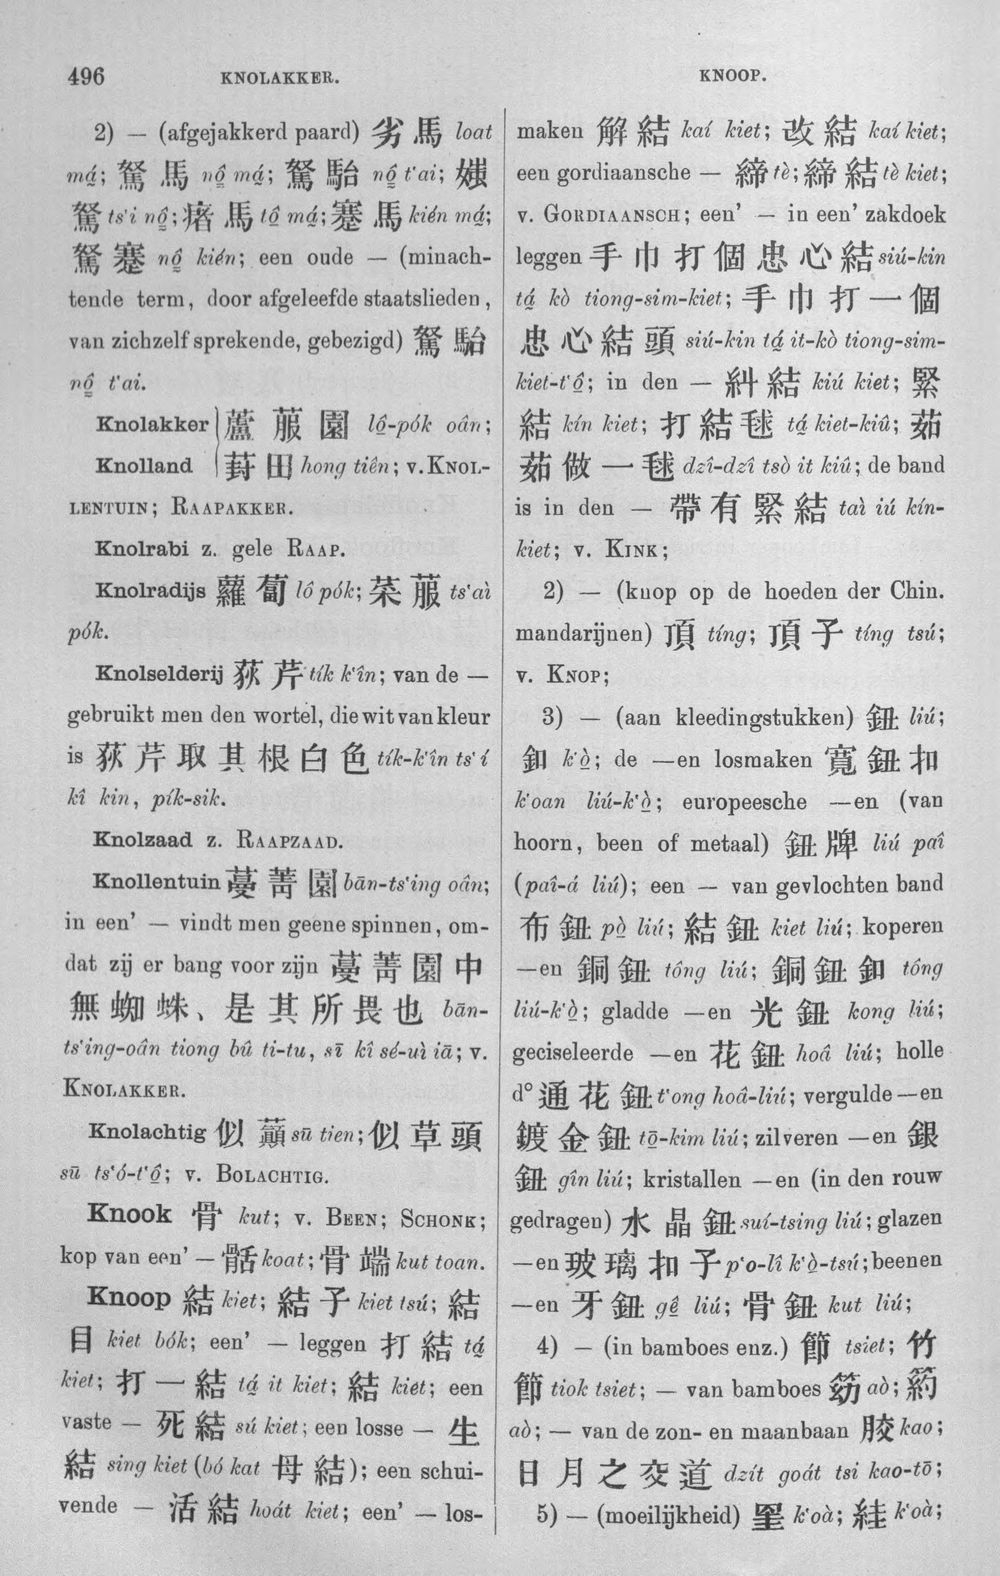 496
KNOLAKKER.
KNOOP.
2) — (afgejakkerd paard) 劣馬 loat
má̤; 駑馬 nô̤ má̤; 駑駘 nô̤ t'ai; 媸
駑 ts'i nô̤; 瘏馬 tô̤ má̤; 蹇馬 kién má̤;
駑蹇 nô̤ kién; een oude — (minach-
tende term, door afgeleefde staatslieden,
van zichzelf sprekende, gebezigd) 駑駘
nô̤ t'ai.
Knolakker 蘆菔園 lô̤-pók oân;
Knolland 葑田 hong tiên; v. KNOL-
LENTUIN; RAAPAKKER.
Knolrabi z. gele RAAP.
Knolradijs 蘿蔔 lô pók; 菜菔 ts'aì
pók.
Knolselderij 荻芹 tík k'în; van de —
gebruikt men den wortel, die wit van kleur
is 荻芹取其根白色 tík-k'în ts'í
kî kin, pík-sik.
Knolzaad z. RAAPZAAD.
Knollentuin 蔓菁園 bān-ts'ing oân;
in een' — vindt men geene spinnen, om-
dat zij er bang voor zijn 蔓菁園中
無蜘蛛、是其所畏也 bān-
ts'ing-oân tiong bû ti-tu, sī kî sé-uì iā; v.
KNOLAKKER.
Knolachtig 似蕦 sū tien; 似草頭
sū ts'ó-t'ô̤; v. BOLACHTIG.
Knook 骨 kut; v. BEEN; SCHONK;
kop van een' — 骺 koat; 骨端 kut toan.
Knoop 結 kiet; 結子 kiet tsú; 結
目 kiet bók; een' — leggen 打結 tá̤
kiet; 打一結 tá̤ it kiet; 結 kiet; een
vaste — 死結 sú kiet; een losse — 生
結 sing kiet (bó kat 母結); een schui-
vende — 活結 hoát kiet; een' — los-
maken 解結 kaí kiet; 改結 kaí kiet;
een gordiaansche — 締 tè; 締結 tè kiet;
v. GORDIAANSCH; een' — in een' zakdoek
leggen 手巾打個忠心結 siú-kin
tá̤ kò tiong-sim-kiet; 手巾打一個
忠心結頭 siú-kin tá̤ it-kò tiong-sim-
kiet-t'ô̤; in den — 糾結 kiú kiet; 緊
結 kín kiet; 打結毬 tá̤ kiet-kiû; 茹
茹做一毬 dzî-dzî tsò it kiû; de band
is in den — 帶有緊結 taì iú kín-
kiet; v. KINK;
2) — (knop op de hoeden der Chin.
mandarijnen) 頂 tíng; 頂子 tíng tsú;
v. KNOP;
3) — (aan kleedingstukken) 鈕 liú;
釦 k'ò̤; de —en losmaken 寬鈕扣
k'oan liú-k'ò̤; europeesche —en (van
hoorn, been of metaal) 鈕牌 liú paî
(paî-á liú); een — van gevlochten band
布鈕 pò̤ liú; 結鈕 kiet liú; koperen
—en 銅鈕 tông liú; 銅鈕釦 tông
liú-k'ò̤; gladde —en 光鈕 kong liú;
geciseleerde —en 花鈕 hoâ liú; holle
d° 通花鈕 t'ong hoâ-liú; vergulde —en
鍍金鈕 tō̤-kim liú; zilveren —en 銀
鈕 gîn liú; kristallen —en (in den rouw
gedragen) 水晶鈕 suí-tsing liú; glazen
—en 玻璃扣子 p'o-lî k'ò̤-tsú; beenen
—en 牙鈕 gê̤ liú; 骨鈕 kut liú;
4) — (in bamboes enz.) 節 tsiet; 竹
節 tiok tsiet; — van bamboes 䇦 aò; 箹
aò; — van de zon- en maanbaan 胶 kao;
日月之交道 dzít goát tsi kao-tō;
5) — (moeilijkheid) 罣 k'oà; 絓 k'oà;